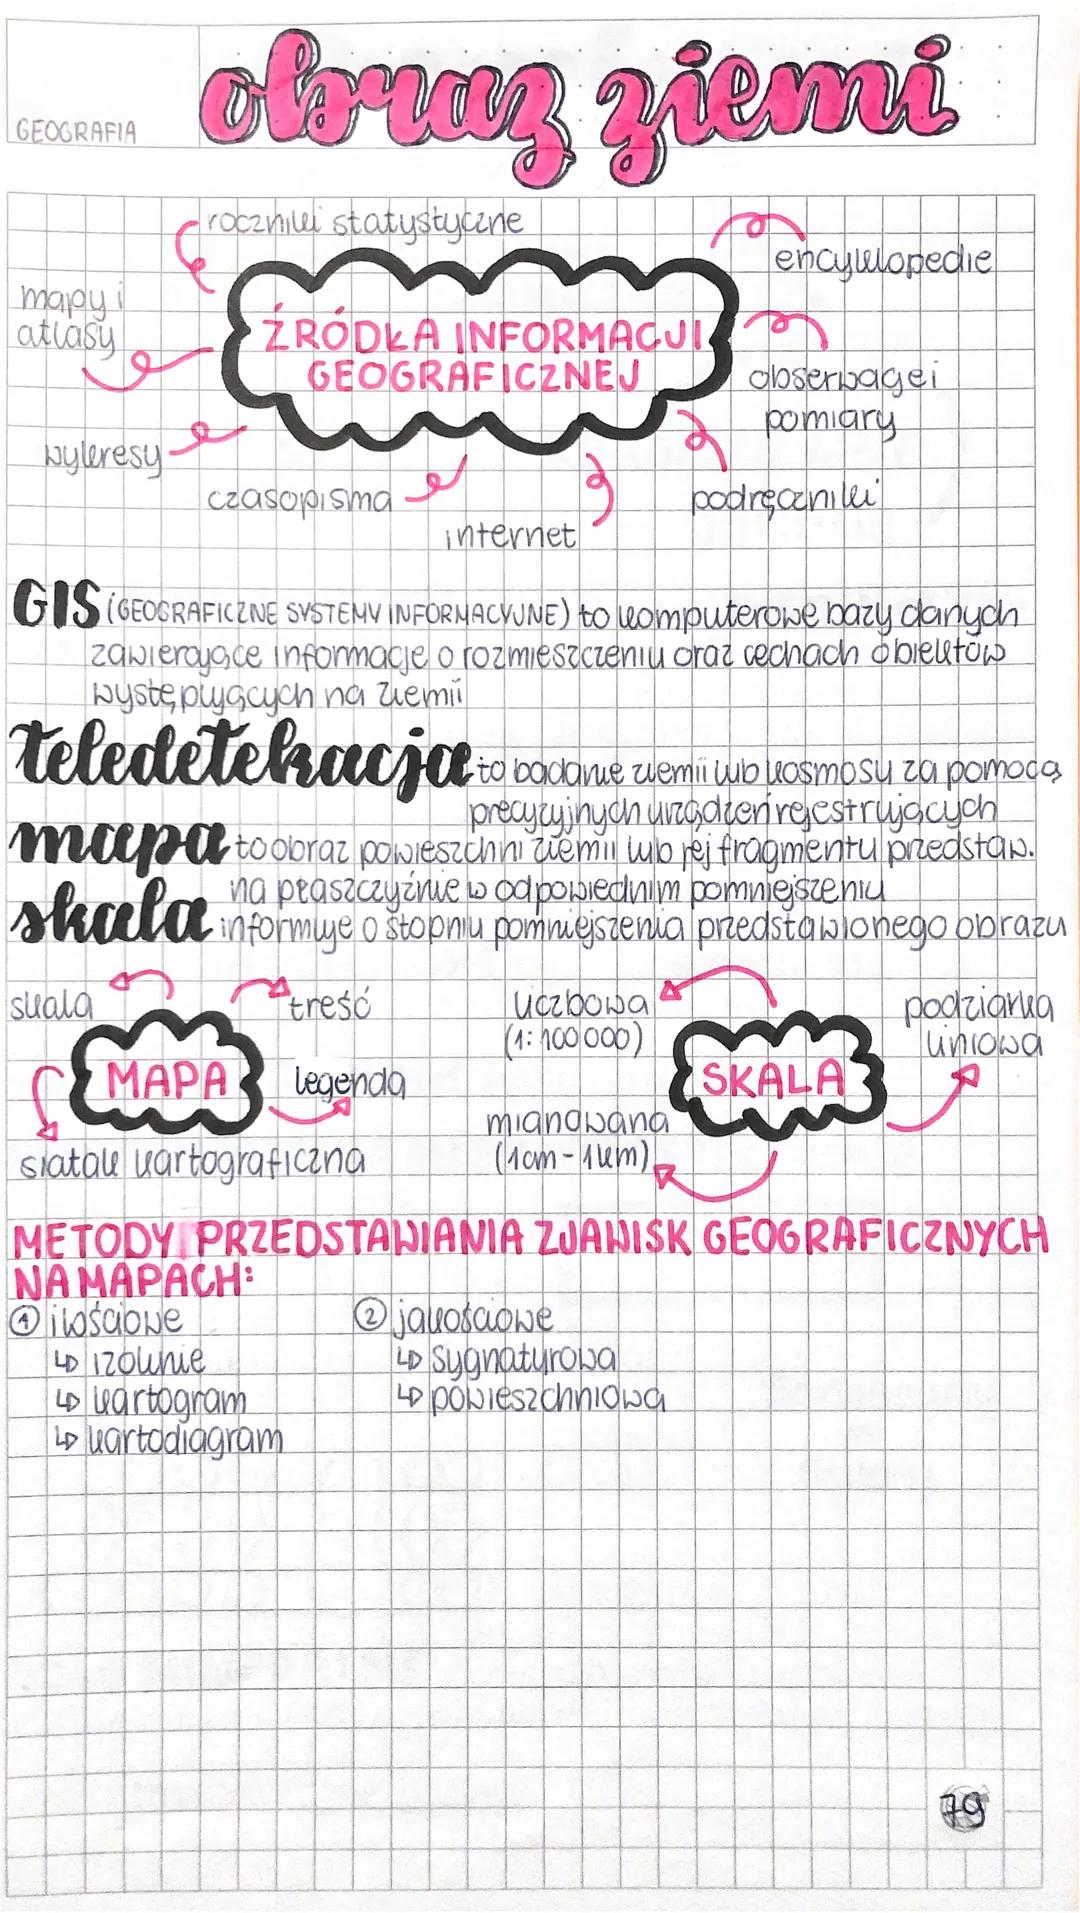 obraz ziemi
GEOGRAFIA
roczniki statystyczne
encyklopedie
mapy i
atlasy
ŹRÓDŁA INFORMACJI
GEOGRAFICZNEJ
obserwacje i
pomiary
wykresy
czasopisma
podręczniki
internet
GIS (GEOGRAFICZNE SYSTEMY INFORMACYJNE) to komputerowe bazy danych
zawierające informacje o rozmieszczeniu oraz cechach obiektów
występujących na ziemii
teledetekacja to badanie ziemii lub kosmosu za pomocą
precyzyjnych urządzeń rejestrujących
mapa to obraz powieszchni ziemii lub jej fragmentu przedstaw.
na płaszczyźnie w odpowiednim pomniejszeniu
skala informuje o stopniu pomniejszenia przedstawionego obrazu
skala
treść
liczbowa
(1:100000)
podziarka
liniowa
MAPA
legenda
SKALA
mianowana
(1cm - 1km)
siatak kartograficzna
METODY PRZEDSTAWIANIA ZJAWISK GEOGRAFICZNYCH
NA MAPACH:
① ilościowe
↳ izolinie
↳ kartogram
↳ kartodiagram
② jakościowe
↳ sygnaturowa
↳ powieszchniowa
79